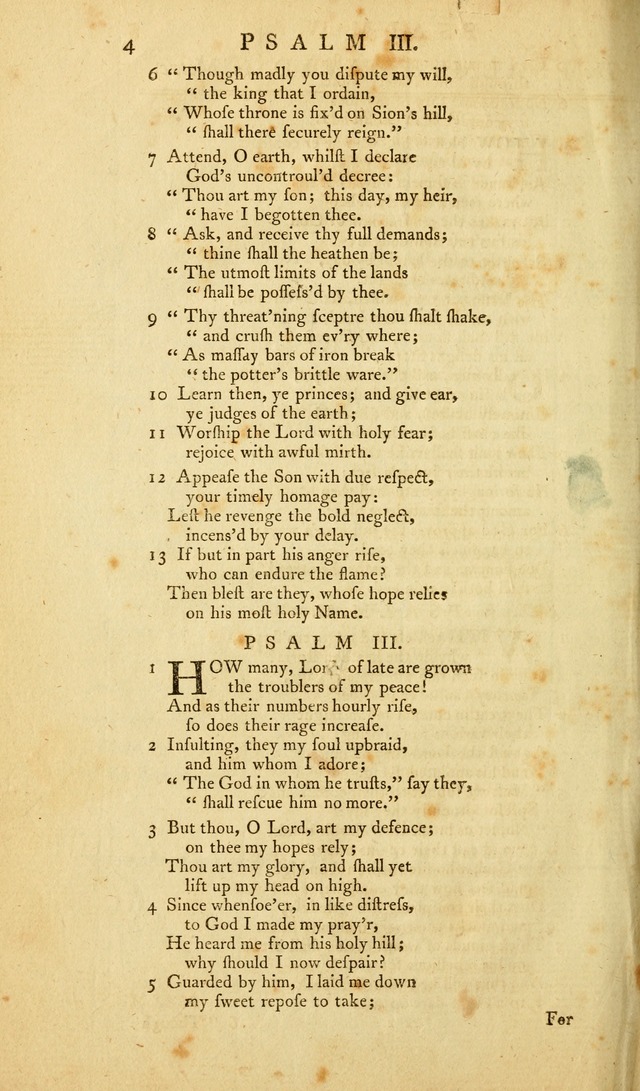 4 PSALM III.
6 “ Though madly you diſpute my will,
“ the king that I ordain,
“ Whoſe throne is fix'd on Sion's hill,
“ ſhall there ſecurely reign.”
7 Attend, O earth, whilſt I declare
God's uncontroul'd decree:
“ Thou art my ſon; this day, my heir,
“ have I begotten thee.
8 “ Ask, and receive thy full demands;
“ thine ſhall the heathen be;
“ The utmoſt limits of the lands
“ ſhall be poſſeſs'd by thee.
9 “ Thy threat'ning ſceptre thou ſhalt ſhake,
“ and cruſh them ev'ry where;
“ As maſſay bars of iron break
“ the potter's brittle ware.”
10 Learn then, ye princes; and give ear,
ye judges of the earth;
11 Worſhip the Lord with holy fear;
rejoice with awful mirth.
12 Appeaſe the Son with due reſpect,
your timely homage pay:
Leſt he revenge the bold neglect,
incens'd by your delay.
13 If but in part his anger riſe,
who can endure the flame?
Then bleſt are they, whoſe hope relies
on his moſt holy Name.
PSALM III.
1 HOW many, Lord, of late are grown
the troublers of my peace!
And as their numbers hourly riſe,
ſo does their rage increaſe.
2 Inſulting, they my ſoul upbraid,
and him whom I adore;
“ The God in whom he truſts,” ſay they,
“ ſhall reſcue him no more.”
3 But thou, O Lord, art my defence;
on thee my hopes rely;
Thou art my glory, and ſhall yet
lift up my head on high.
4 Since whenſoe'er, in like diſtreſs,
to God I made my pray'r,
He heard me from his holy hill;
why ſhould I now deſpair?
5 Guarded by him, I laid me down
my ſweet repoſe to take;
For